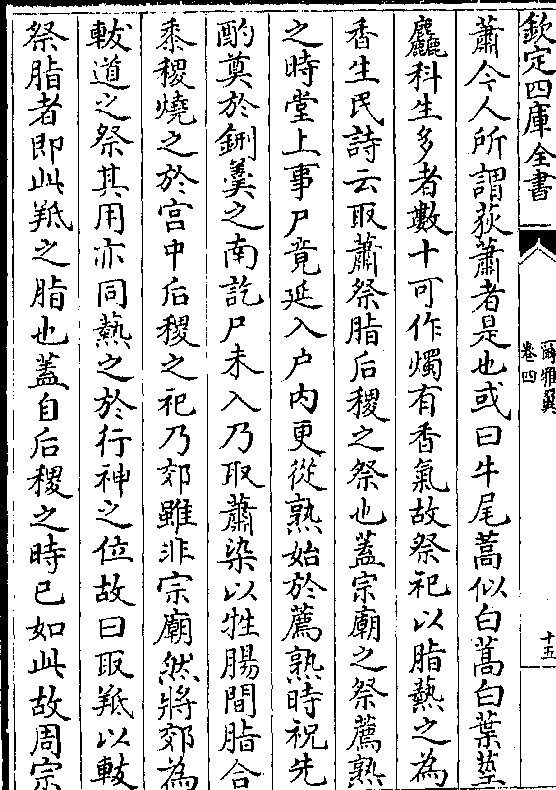 欽定四庫全書
爾雅翼
卷四
十五
蕭今人所謂荻蕭者是也或曰牛尾蒿似白蒿白葉莖
麤科生多者數十可作燭有香氣故祭祀以脂爇之為
香生民詩云取蕭祭脂后稷之祭也蓋宗廟之祭薦熟
之時堂上事尸竟延入户内更從熟始於薦熟時祝先
酌奠於鉶羹之南訖尸未入乃取蕭染以牲腸間脂合
黍稷燒之於宫中后稷之祀乃郊雖非宗廟然將郊為
軷道之祭其用亦同爇之於行神之位故曰取羝以軷
祭脂者即此羝之脂也蓋自后稷之時已如此故周宗